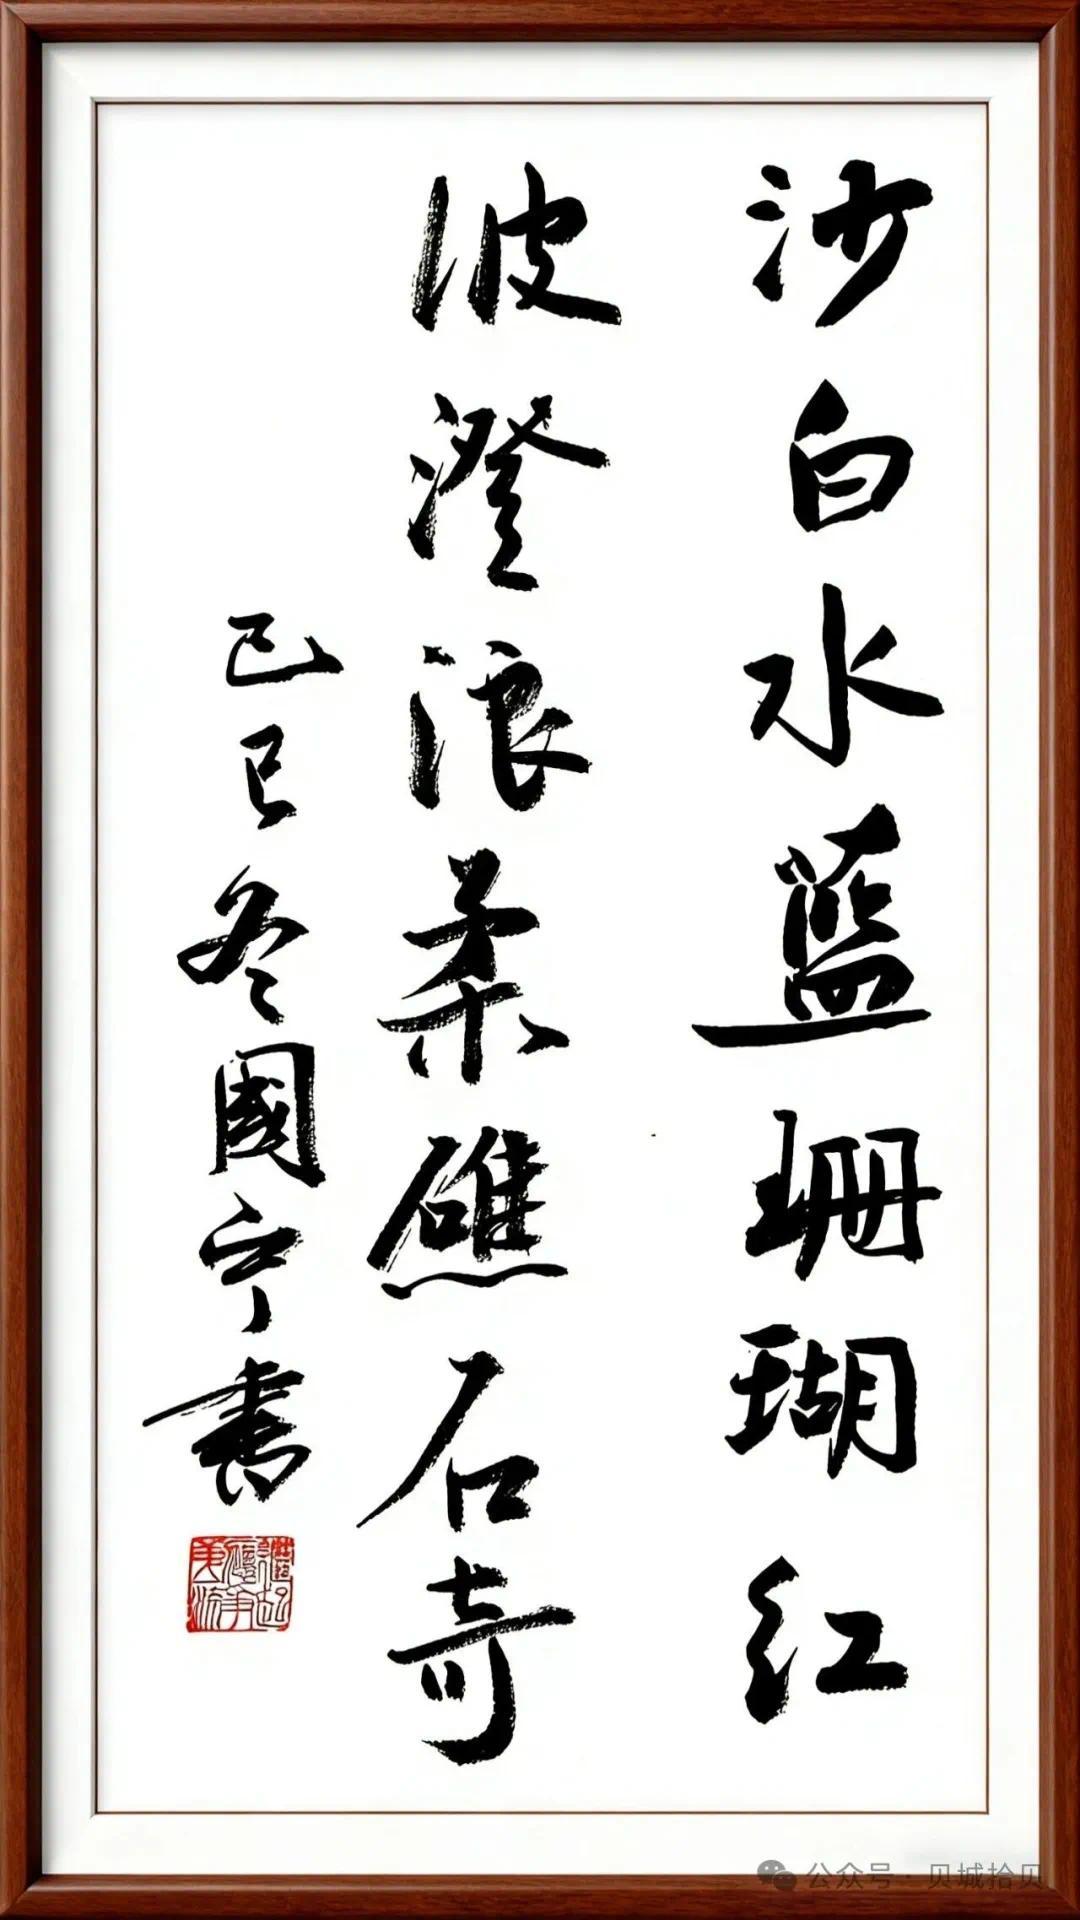 沙白水蓝珊瑚红
波澄浪柔礁石奇
乙巳冬國宁书
公众号·贝城拾贝